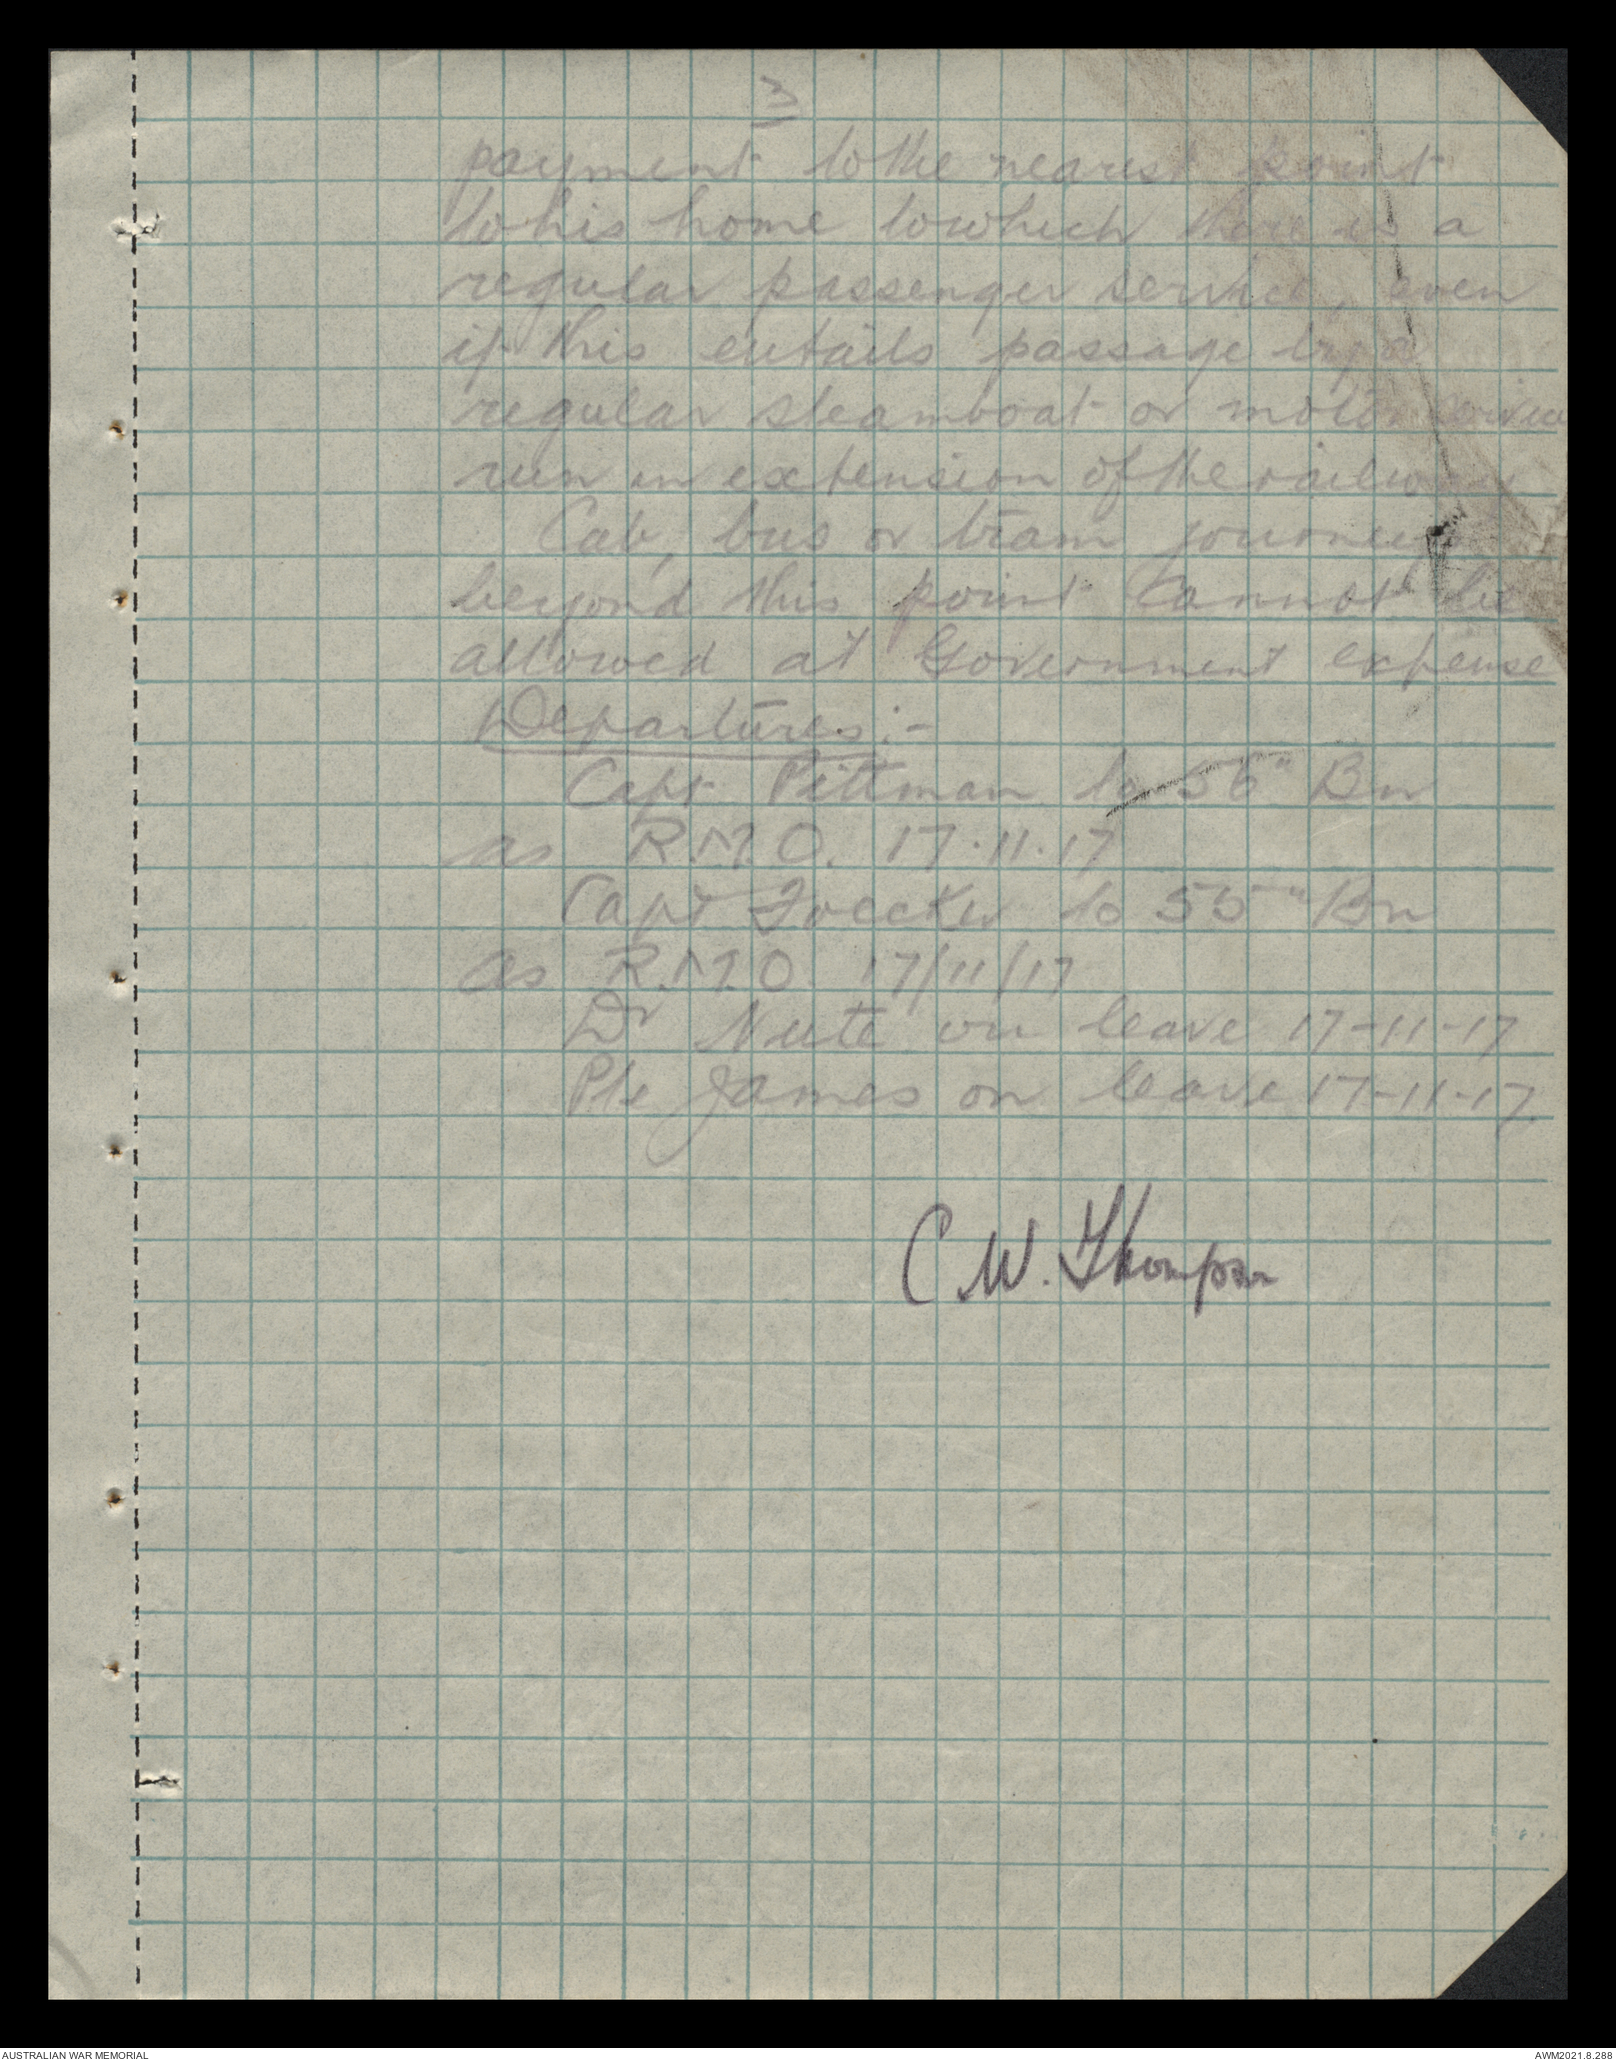 3
payment to the nearest point
to his home to which there is a
regular passenger service, even
if this entails passage by a
regular steamboat or motor service
run in extension of the railway
Cab, bus or tram journeys
beyond this point cannot be
allowed at Government expense
Departures:-
Capt Pittman to 56" Bn
as R.M.O. 17.11.17
Capt to 55" Bn
as R.M.O. 17/11/17
Dr Nute on leave 17-11-17
Pte James on leave 17-11-17
C W. Thompson
AUSTRALIAN WAR MEMORIAL
AWM2021.8.288